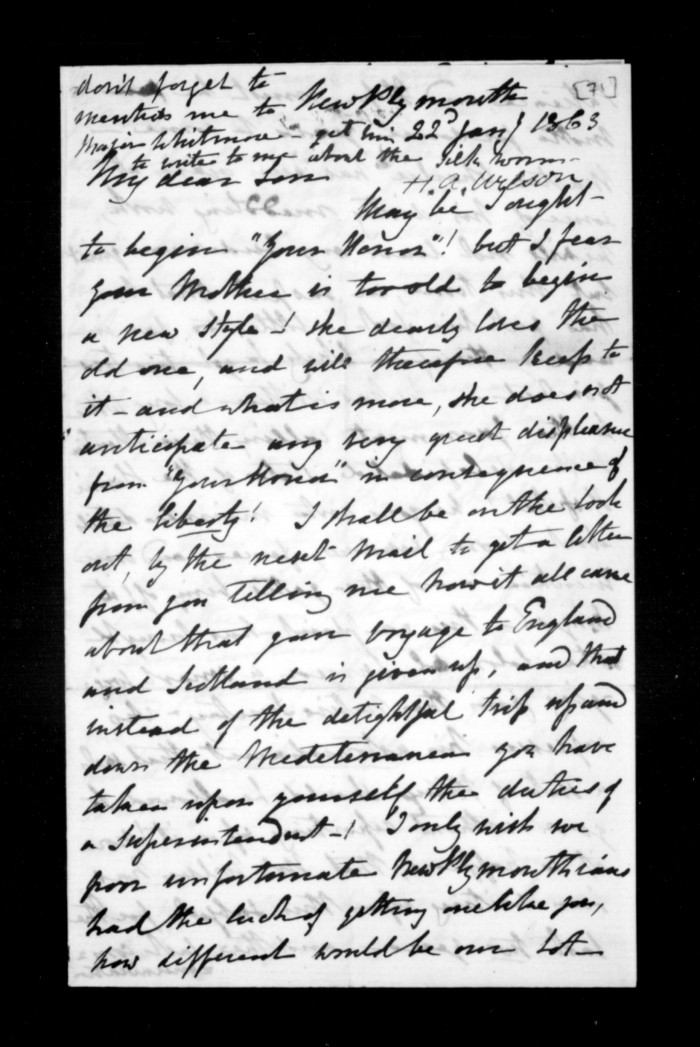 [7]
don't forget to
mention me to New Plymouth
Major Whitmore - get him 22d Jany 1863
to write to me about the silk worms -
H. A. Wilson
My dear Son
May be I ought
to begin "Your Honor"! but I fear
your Mother is too old to begin
a new style -! she dearly loves the
old one, and will therefore keep to
it - and what is more, she does not
anticipate any very great displeasure
from "Your Honor" in consequence of
the liberty! I shall be on the look
out, by the next Mail to get a letter
from you telling me how it all came
about that your voyage to England
and Scotland is given up, and that
instead of the delightful trip up and
down the Mediterranean you have
taken upon yourself the duties of
a Superintendent -! I only wish we
poor unfortunate New Plymouthians
had the luck of getting one like you,
how different would be our Lot -